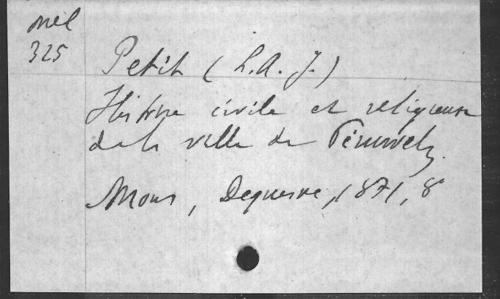 mél
325
Petit (L.A.J.)
Histoire civile et religieuse
de la ville de Péruwelz
Mons, Dequesne, 1871, 8°